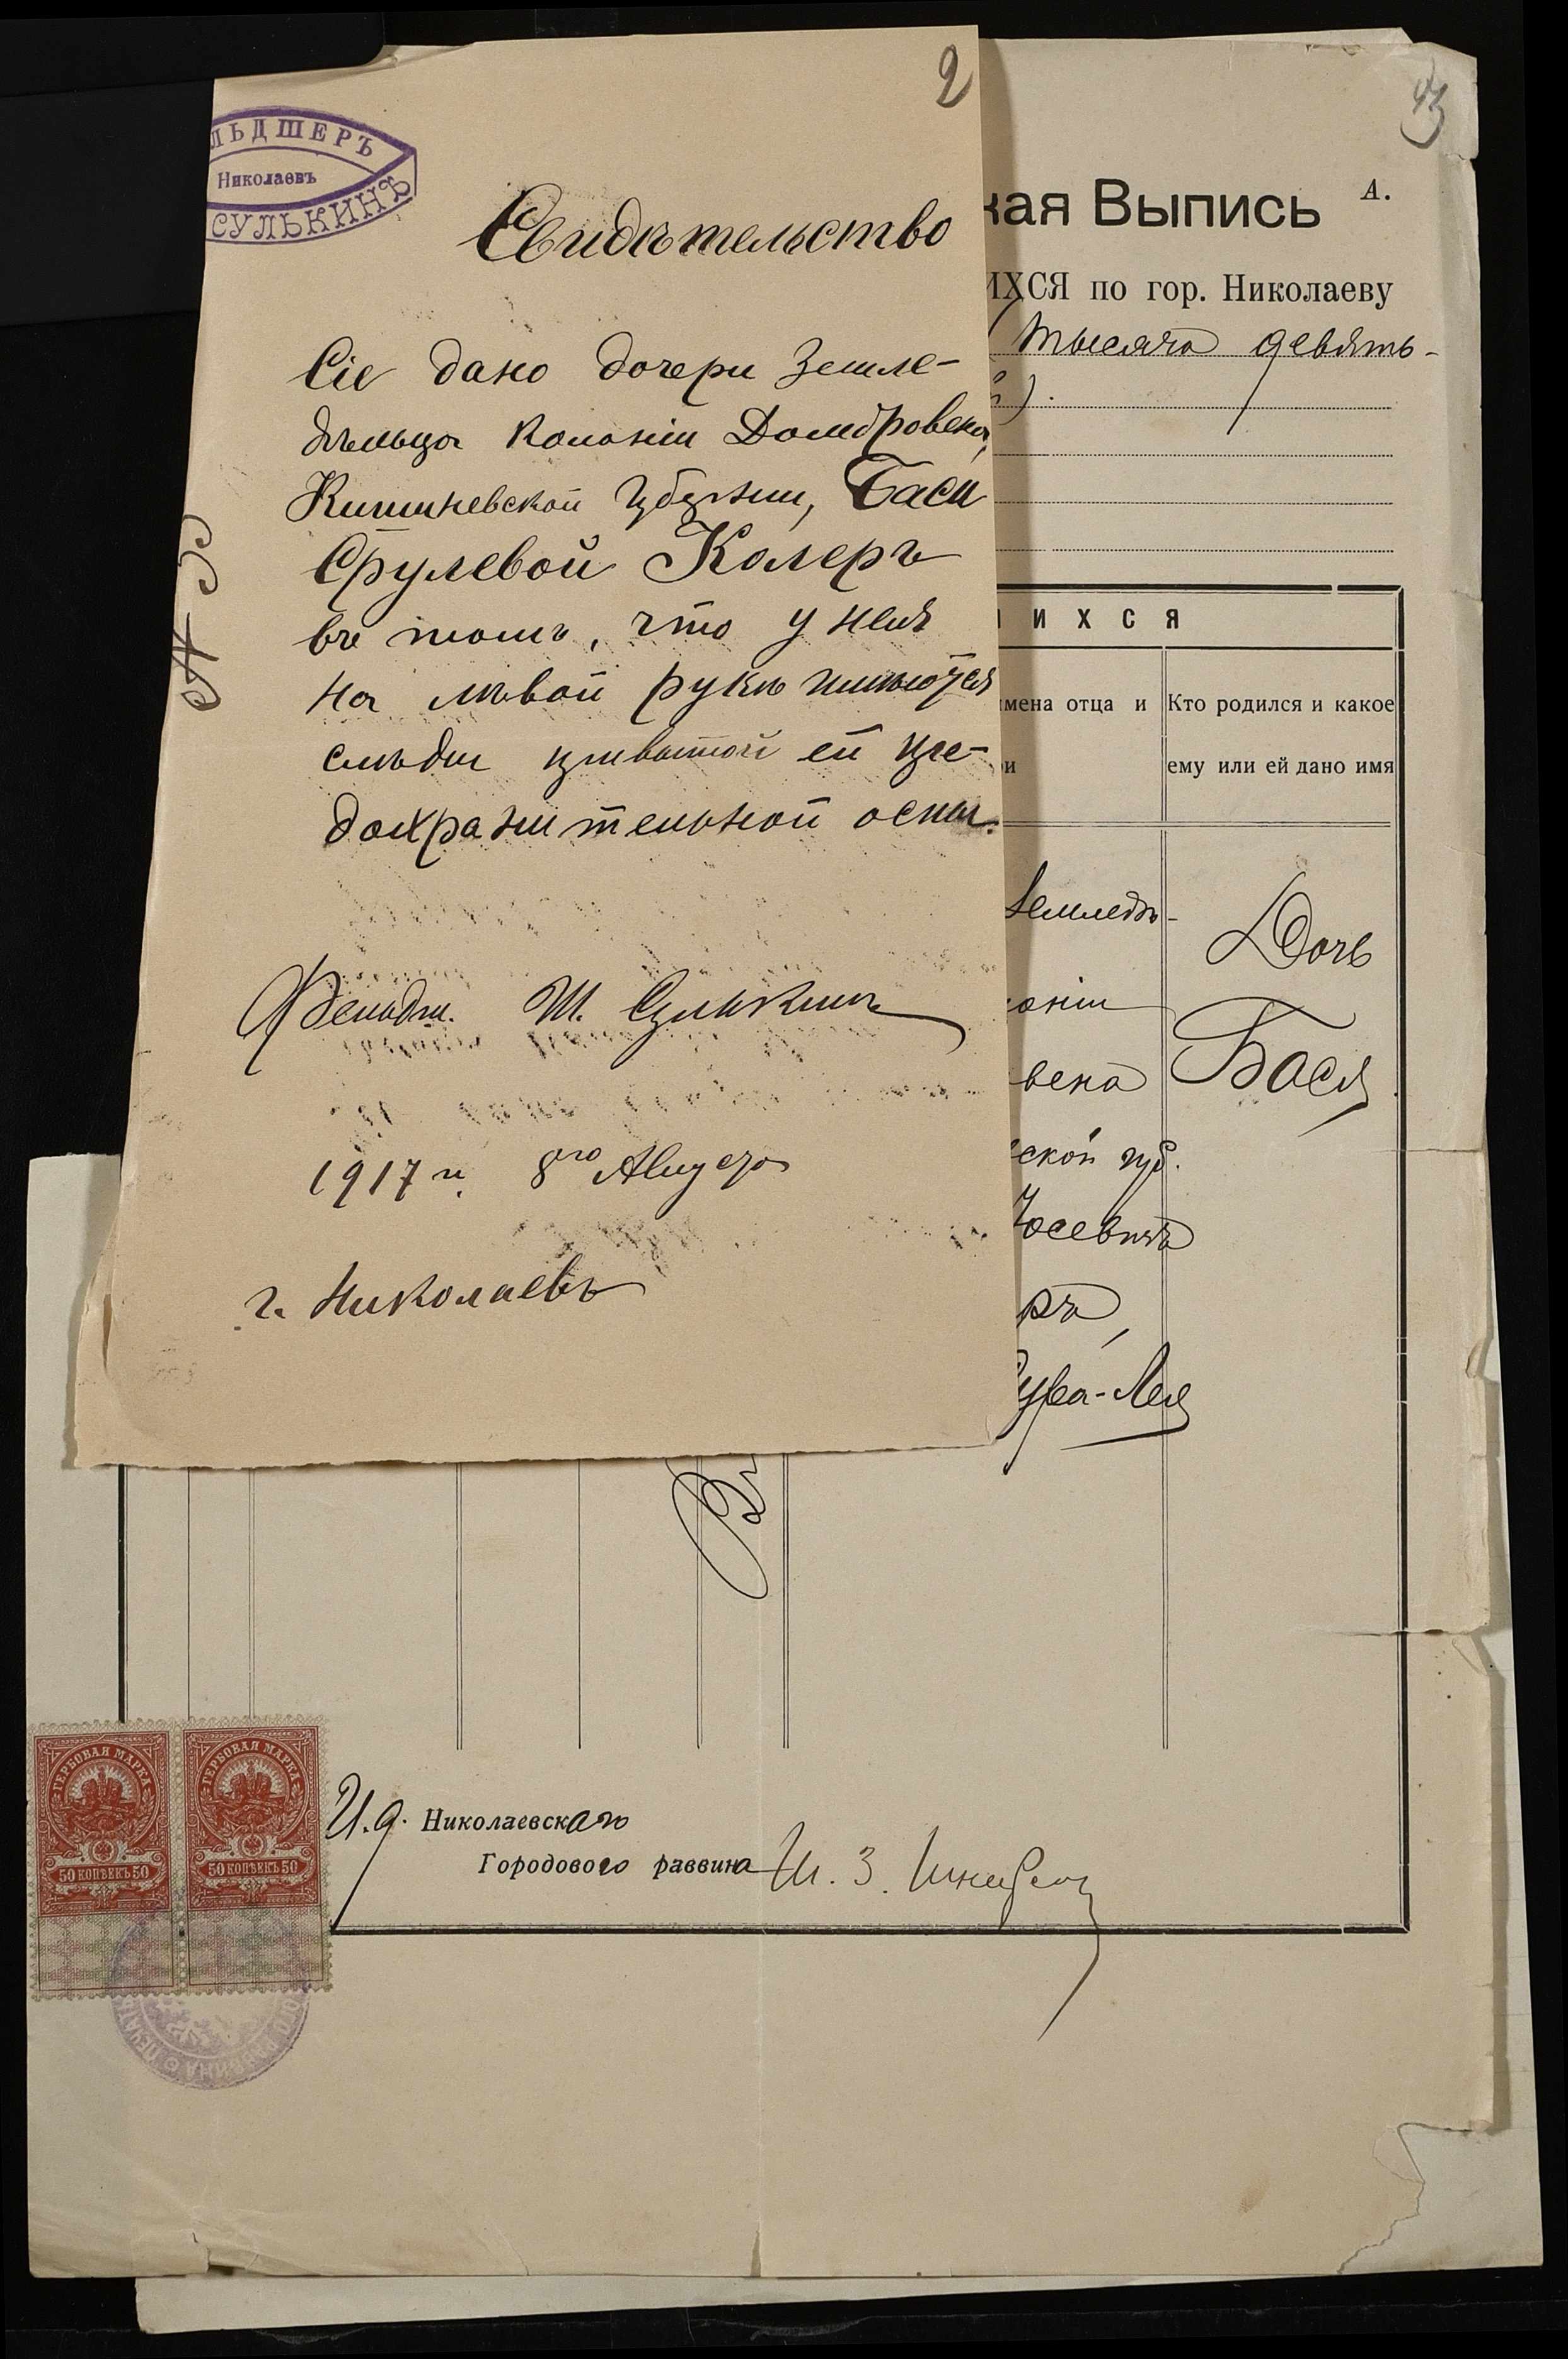 2
ЛЬДШЕРЪ
Николаевъ
СУЛЬКИНЪ
Свидѣтельство
Сіе дано дочери Земле-
дѣльца Колоніи Домбровена,
Кишиневской Губерніи, Баси
Срулевой Колеръ
въ томъ, что у нея
на лѣвой рукѣ имѣются
слѣды привитой ей пре-
дохранительной оспы.
Фельдш. Ш. Сулькинъ
1917 г. 8го Августа
г. Николаевъ
43
кая Выпись
А.
ИХСЯ по гор. Николаеву
тысяча девять-
й).
ИХСЯ
имена отца и
ри
Кто родился и какое
ему или ей дано имя
Земледѣ-
оніи
вена
ской губ.
Іосевичъ
ръ,
Сура-Лея
Дочь
Бася
ГЕРБОВАЯ МАРКА
50 КОПѢЕКЪ 50
ГЕРБОВАЯ МАРКА
50 КОПѢЕКЪ 50
И.д. Николаевскаго
Городового раввина